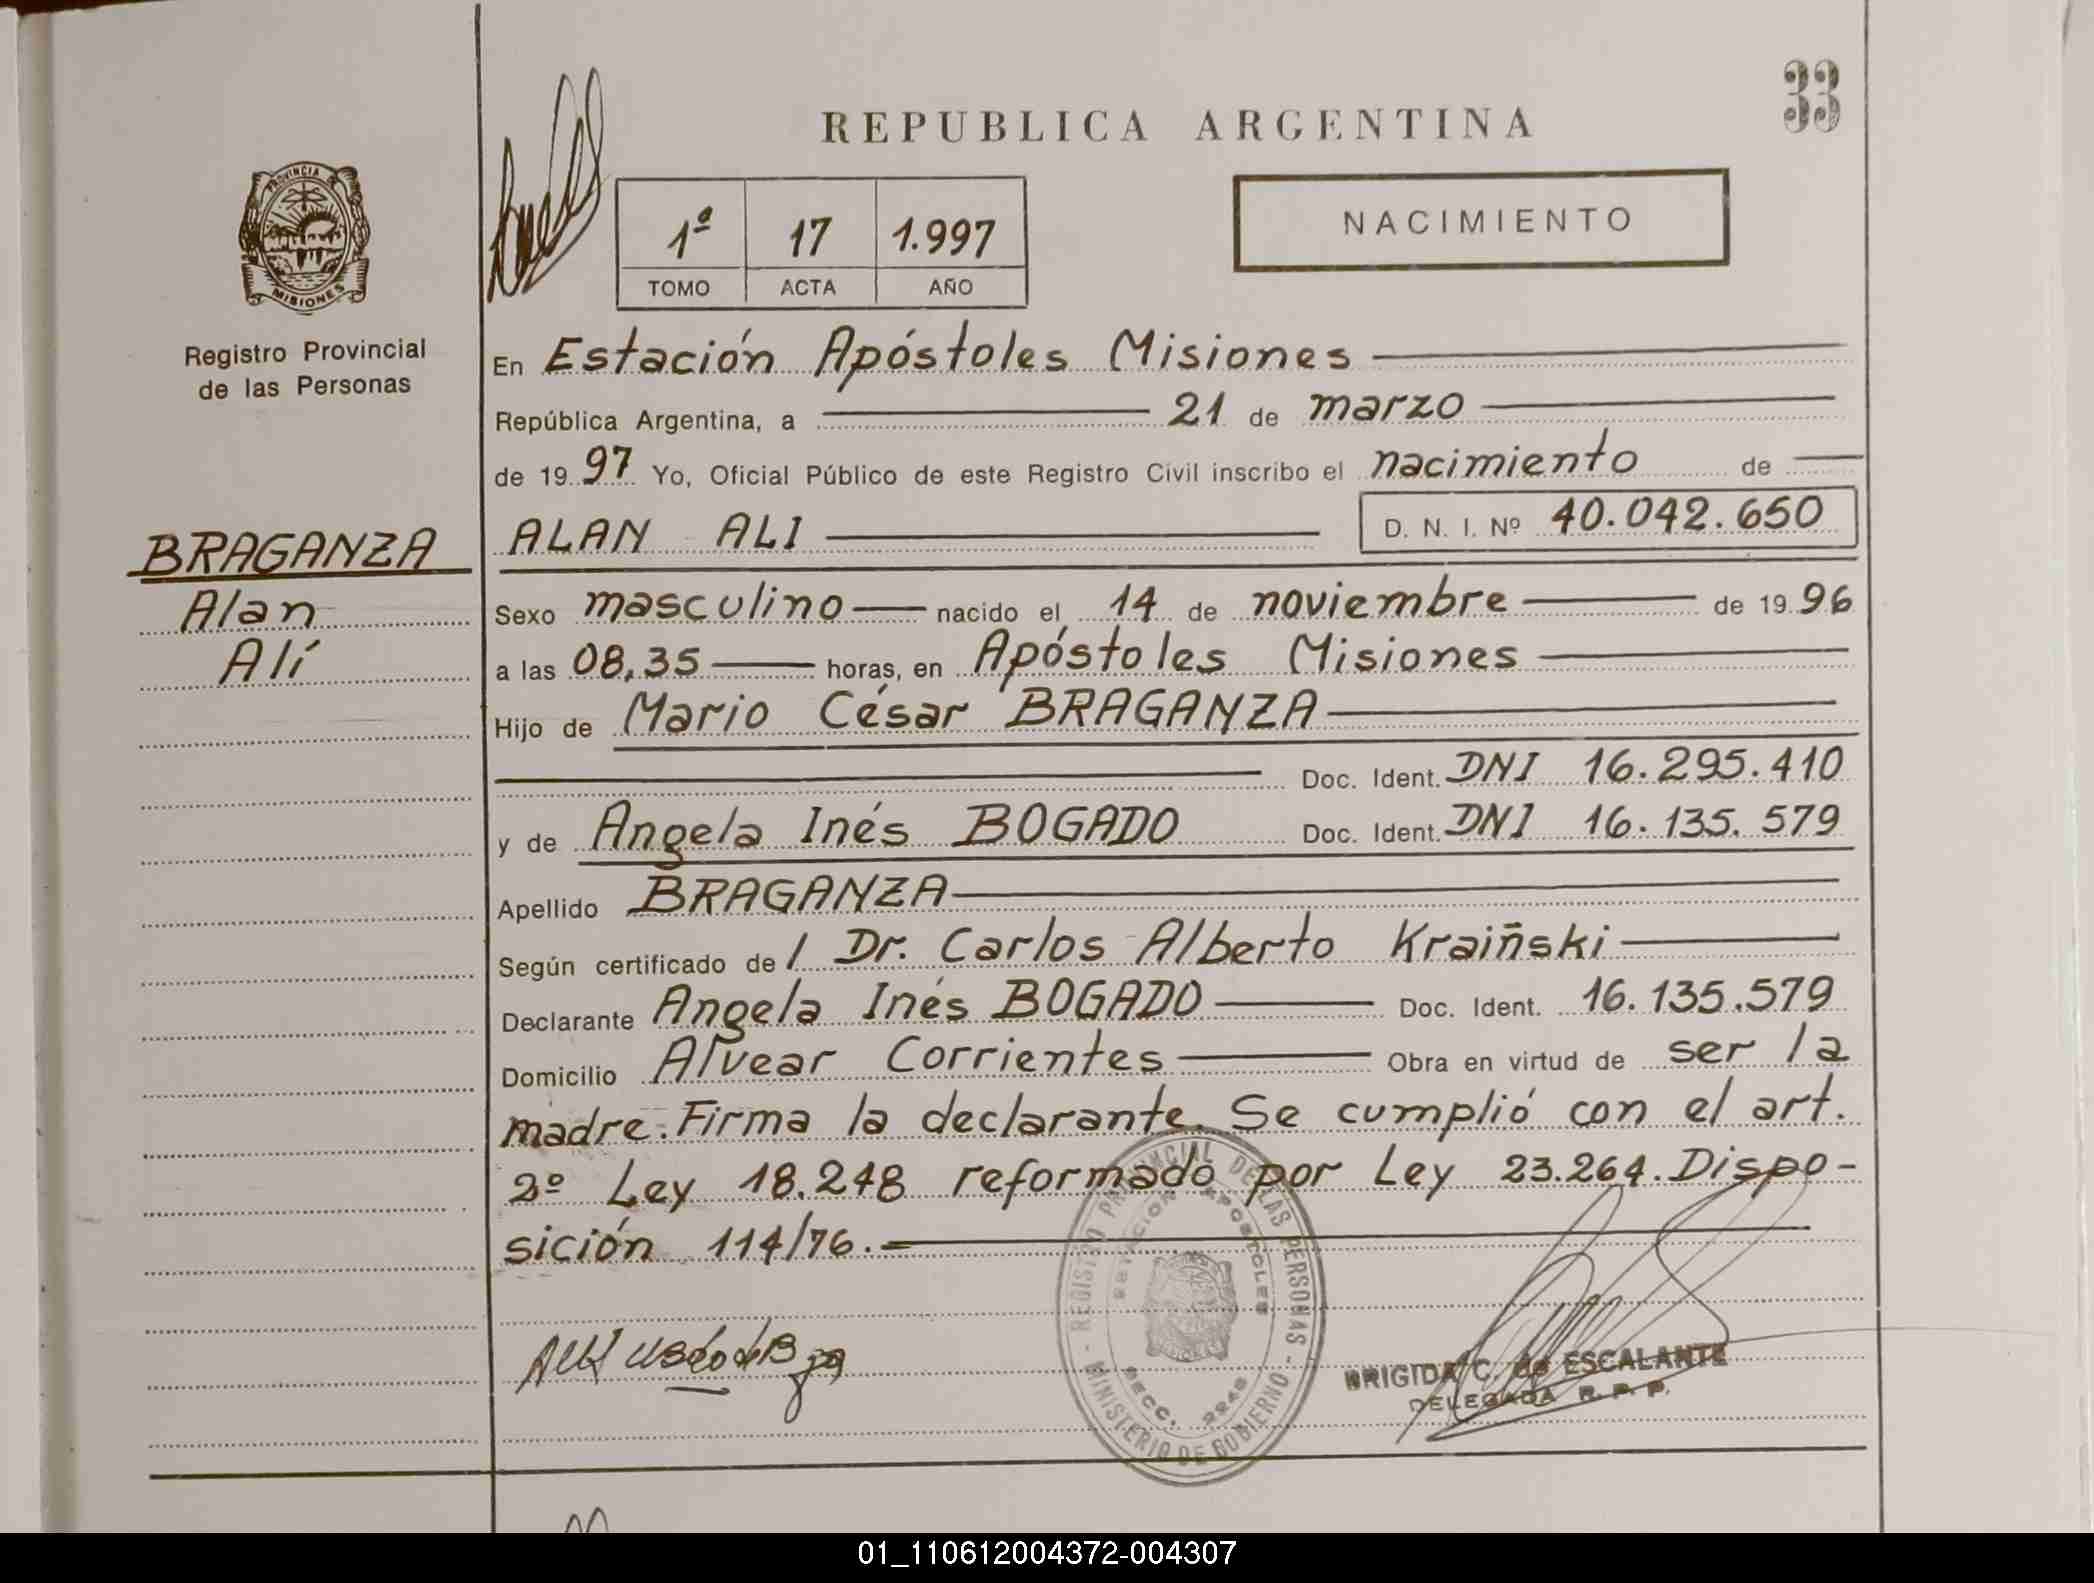 33
REPUBLICA ARGENTINA
PROVINCIA DE
MISIONES
Registro Provincial
de las Personas
1ª 17 1.997
TOMO ACTA AÑO
NACIMIENTO
En Estación Apóstoles Misiones
República Argentina, a 21 de marzo
de 19 97 Yo, Oficial Público de este Registro Civil inscribo el nacimiento de
ALAN ALI D. N. I. Nº 40.042.650
BRAGANZA
Alan
Alí
Sexo masculino nacido el 14 de noviembre de 19 96
a las 08,35 horas, en Apóstoles Misiones
Hijo de Mario César BRAGANZA
Doc. Ident. DNI 16.295.410
y de Angela Inés BOGADO Doc. Ident. DNI 16.135.579
Apellido BRAGANZA
Según certificado de l Dr. Carlos Alberto Kraiñski
Declarante Angela Inés BOGADO Doc. Ident. 16.135.579
Domicilio Alvear Corrientes Obra en virtud de ser la
madre. Firma la declarante. Se cumplió con el art.
2º Ley 18.248 reformado por Ley 23.264. Dispo-
sición 114/76.-
REGISTRO PROVINCIAL DE LAS PERSONAS - MINISTERIO DE GOBIERNO -
ESTACION APOSTOLES
SECC. 2248
BRIGIDA C. de ESCALANTE
DELEGADA R. P. P.
01_110612004372-004307